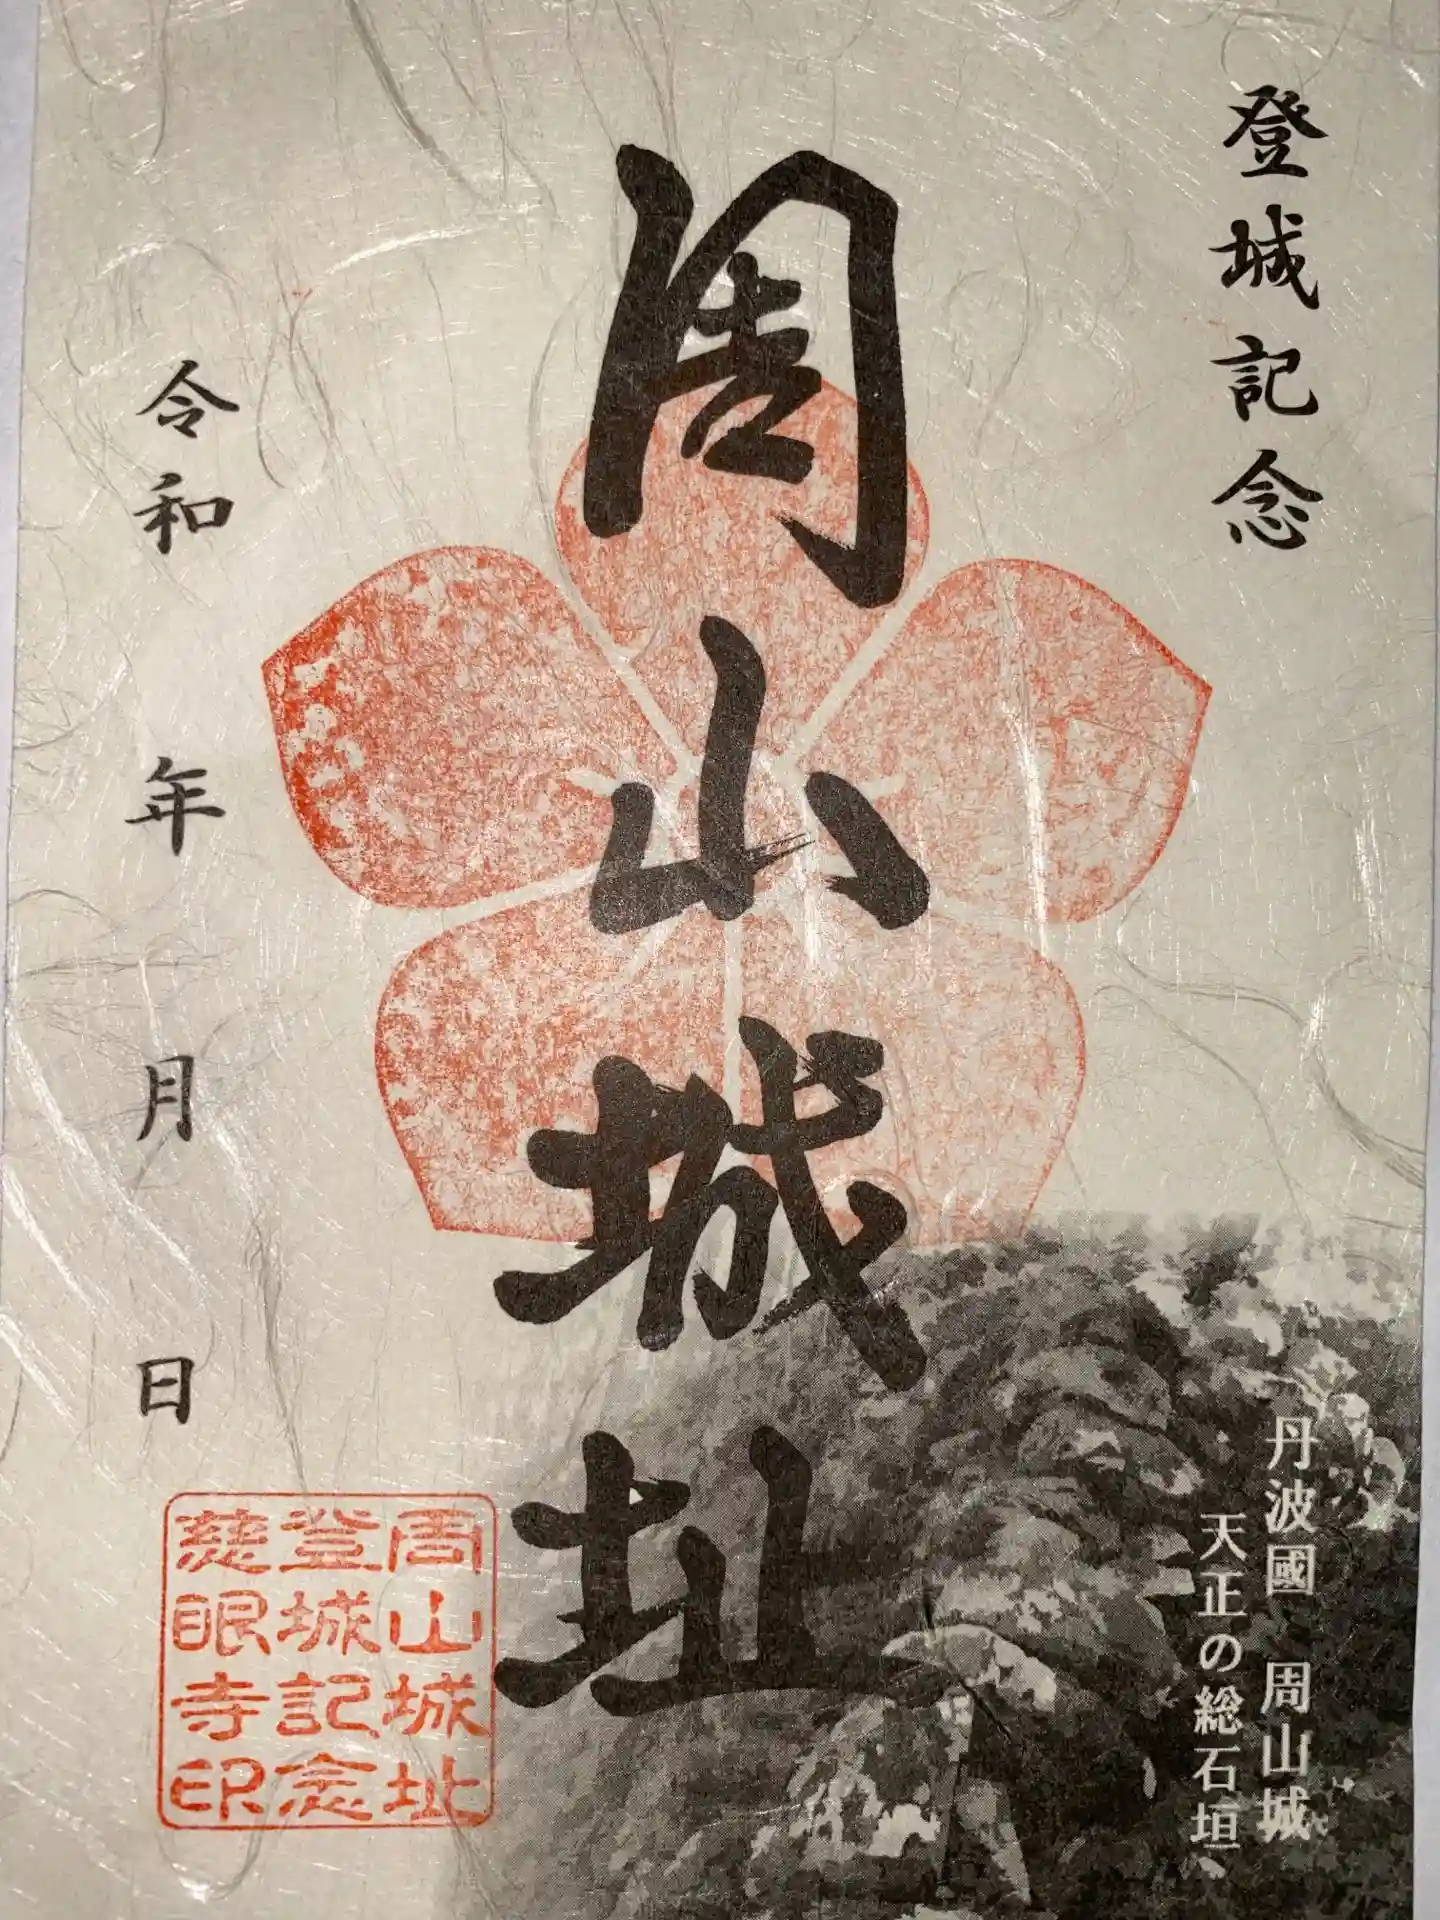 登城記念
周山城址
令和 年 月 日
丹波國 周山城
天正の総石垣
周山城址
登城記念
慈眼寺印